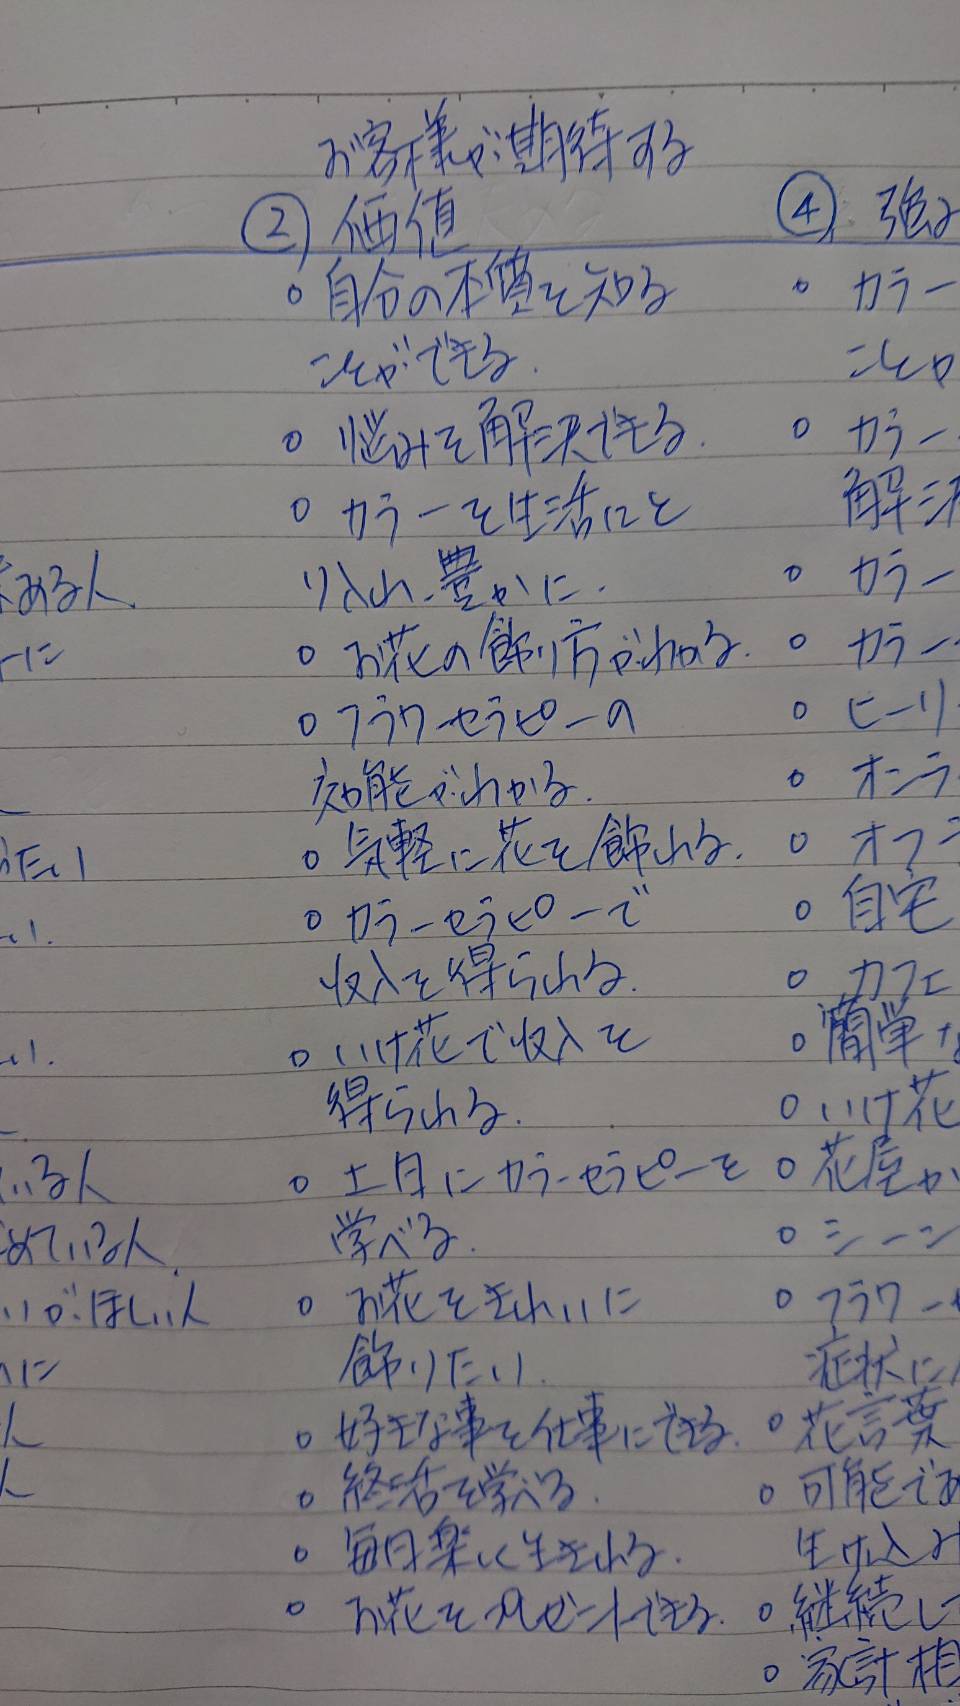 お客様が期待する
② 価値
○ 自分の本質を知る
ことができる.
○ 悩みを解決できる.
○ カラーを生活にと
り入れ、豊かに.
○ お花の飾り方がわかる.
○ フラワーセラピーの
効能がわかる.
○ 気軽に花を飾れる.
○ カラーセラピーで
収入を得られる.
○ いけ花で収入を
得られる.
○ 土日にカラーセラピーを
学べる.
○ お花をきれいに
飾りたい.
○ 好きな事を仕事にできる.
○ 終活を学べる.
○ 毎日楽しく生きれる.
○ お花をプレゼントできる.
④ 強み
○ カラー
ことが
○ カラー
解決
○ カラー
○ カラー
○ ヒーリ
○ オンラ
○ オフラ
○ 自宅
○ カフェ
○ 簡単な
○ いけ花
○ 花屋が
○ シーン
○ フラワー
症状に
○ 花言葉
○ 可能であ
生け込み
○ 継続して
○ 家計相
ある人.
ーに
たい
い.
い.
いる人
めている人.
いがほしい人
に
人
人